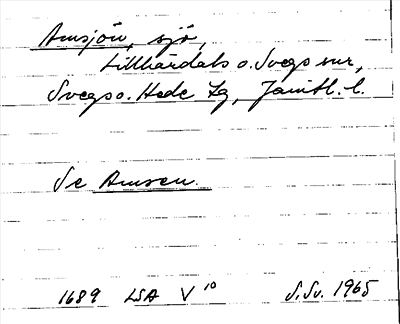 Amsjön, sjö,
Lillhärdals o. Svegs snr,
Svegs o. Hede tg, Jämtl. l.
Se Amsen.
1689 LSA V 10 S.Sv. 1965